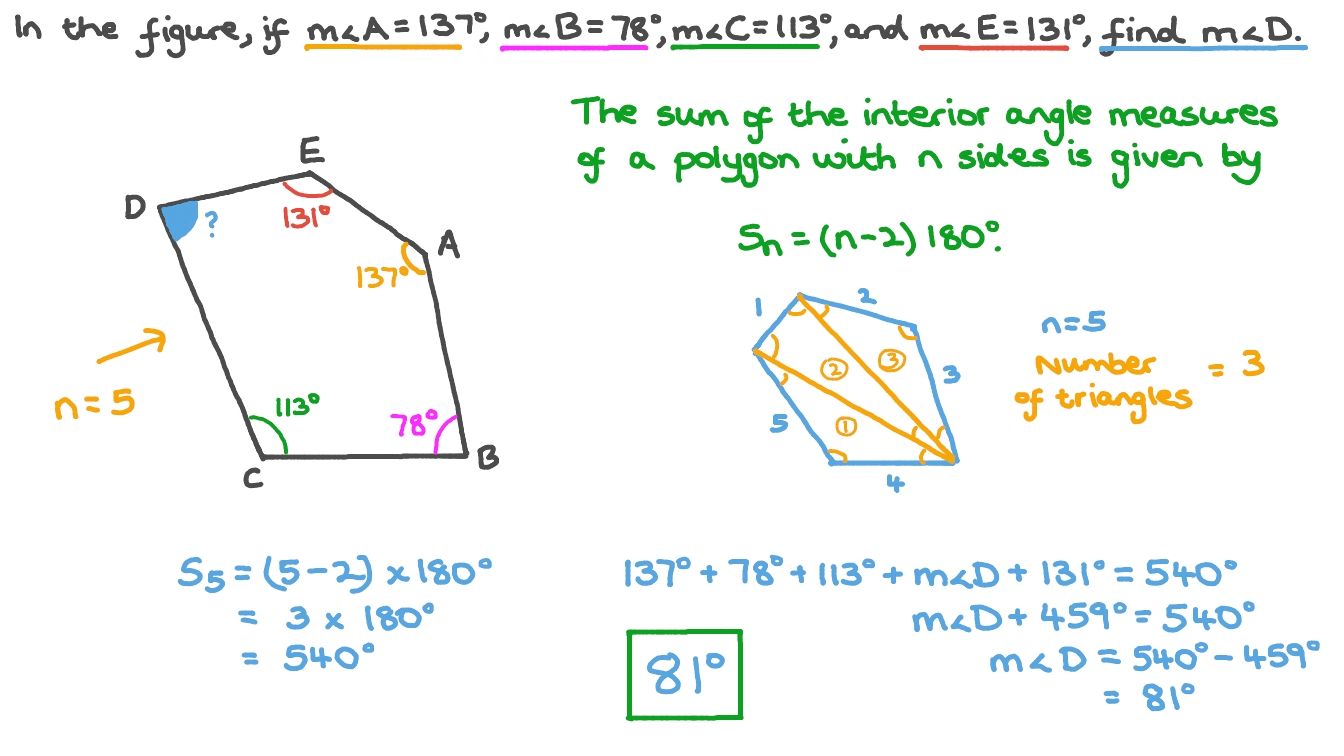 In the figure, if m∠A=137°, m∠B=78°, m∠C=113°, and m∠E=131°, find m∠D.
The sum of the interior angle measures
of a polygon with n sides is given by
Sn = (n-2) 180°.
E
D
?
131°
A
137°
n=5
113°
78°
C
B
1
2
3
4
5
①
②
③
n=5
Number
of triangles
= 3
S5 = (5-2) × 180°
= 3 × 180°
= 540°
137° + 78° + 113° + m∠D + 131° = 540°
m∠D + 459° = 540°
m∠D = 540° - 459°
= 81°
81°